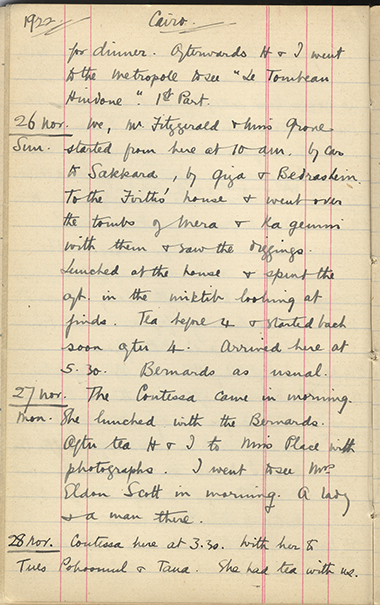 1922 Cairo.
for dinner. Afterwards H & I went
to the Metropole to see "Le Tombeau
Hindone" 1st Part.
26 Nov. We, Mr Fitzgerald & Miss Grove
Sun. started from here at 10 am. by car
to Sakkara, by Giza & Bedrashein.
To the Firths' house & went over
the tombs of Mera & Ka gemni
with them & saw the diggings.
Lunched at the house & spent the
aft. in the miktib looking at
finds. Tea before 4 & started back
soon after 4. Arrived here at
5.30. Bernards as usual.
27 Nov. The Contessa came in morning.
Mon. She lunched with the Bernards.
After tea H & I to Miss Place with
photographs. I went to see Mrs
Eldon Scott in morning. A lady
& a man there.
28 Nov. Contessa here at 3.30. With her to
Tues &. She had tea with us.